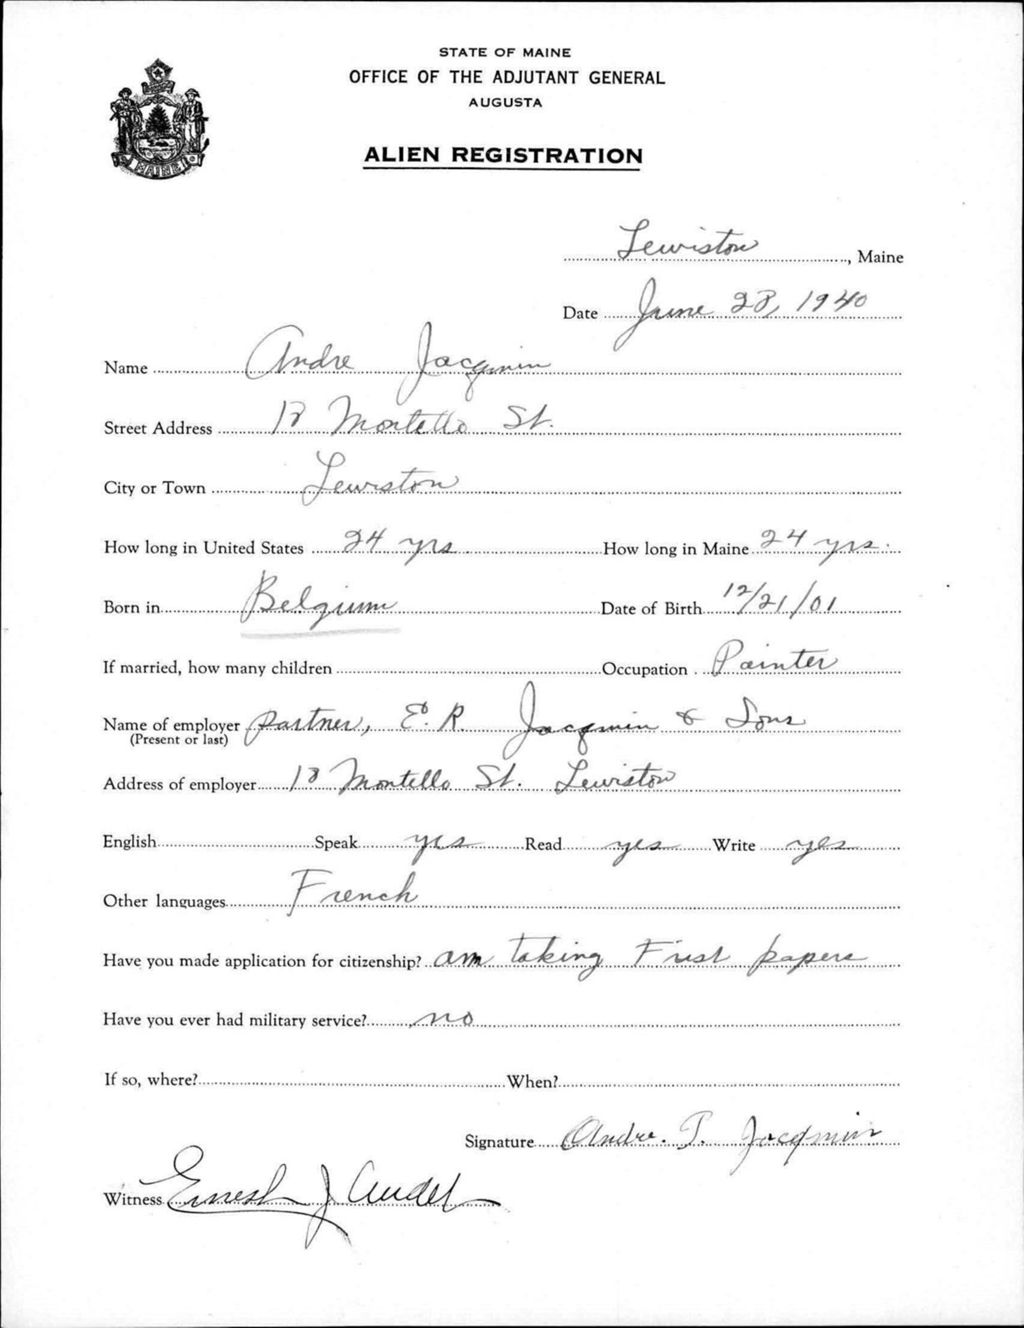 STATE OF MAINE
OFFICE OF THE ADJUTANT GENERAL
AUGUSTA
ALIEN REGISTRATION
MAINE
Lewiston, Maine
Date June 28, 1940
Name Andre Jacqmin
Street Address 18 Montello St.
City or Town Lewiston
How long in United States 24 yrs How long in Maine 24 yrs.
Born in Belgium Date of Birth 12/21/01
If married, how many children Occupation Painter
Name of employer partner, E. R. Jacqmin & Sons
(Present or last)
Address of employer 18 Montello St. Lewiston
English Speak yes Read yes Write yes
Other languages French
Have you made application for citizenship? am taking First papers
Have you ever had military service? no
If so, where? When?
Signature Andre. T. Jacqmin
Witness Ernest J Audet